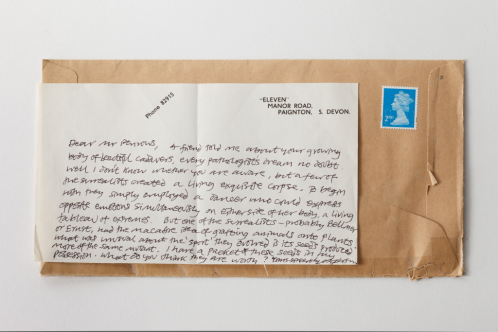 Phone 82915
"ELEVEN"
MANOR ROAD,
PAIGNTON, S. DEVON.
2nd
Dear Mr Penrose, A friend told me about your growing
body of beautiful cadavers, every pathologists dream no doubt.
Well I don't know whether you are aware, but a few of
the surrealists created a living exquisite corpse. To begin
with they simply employed a dancer who could express
opposite emotions simultaneously on either side of her body, a living
tableau of extremes. But one of the surrealists - probably Bellmer
or Ernst, had the macabre idea of grafting animals onto plants
what was unusual about the 'sport' they entered is its seeds produced
more of the same mutant. I have a packet of these seeds in my
possession. What do you think they are worth?